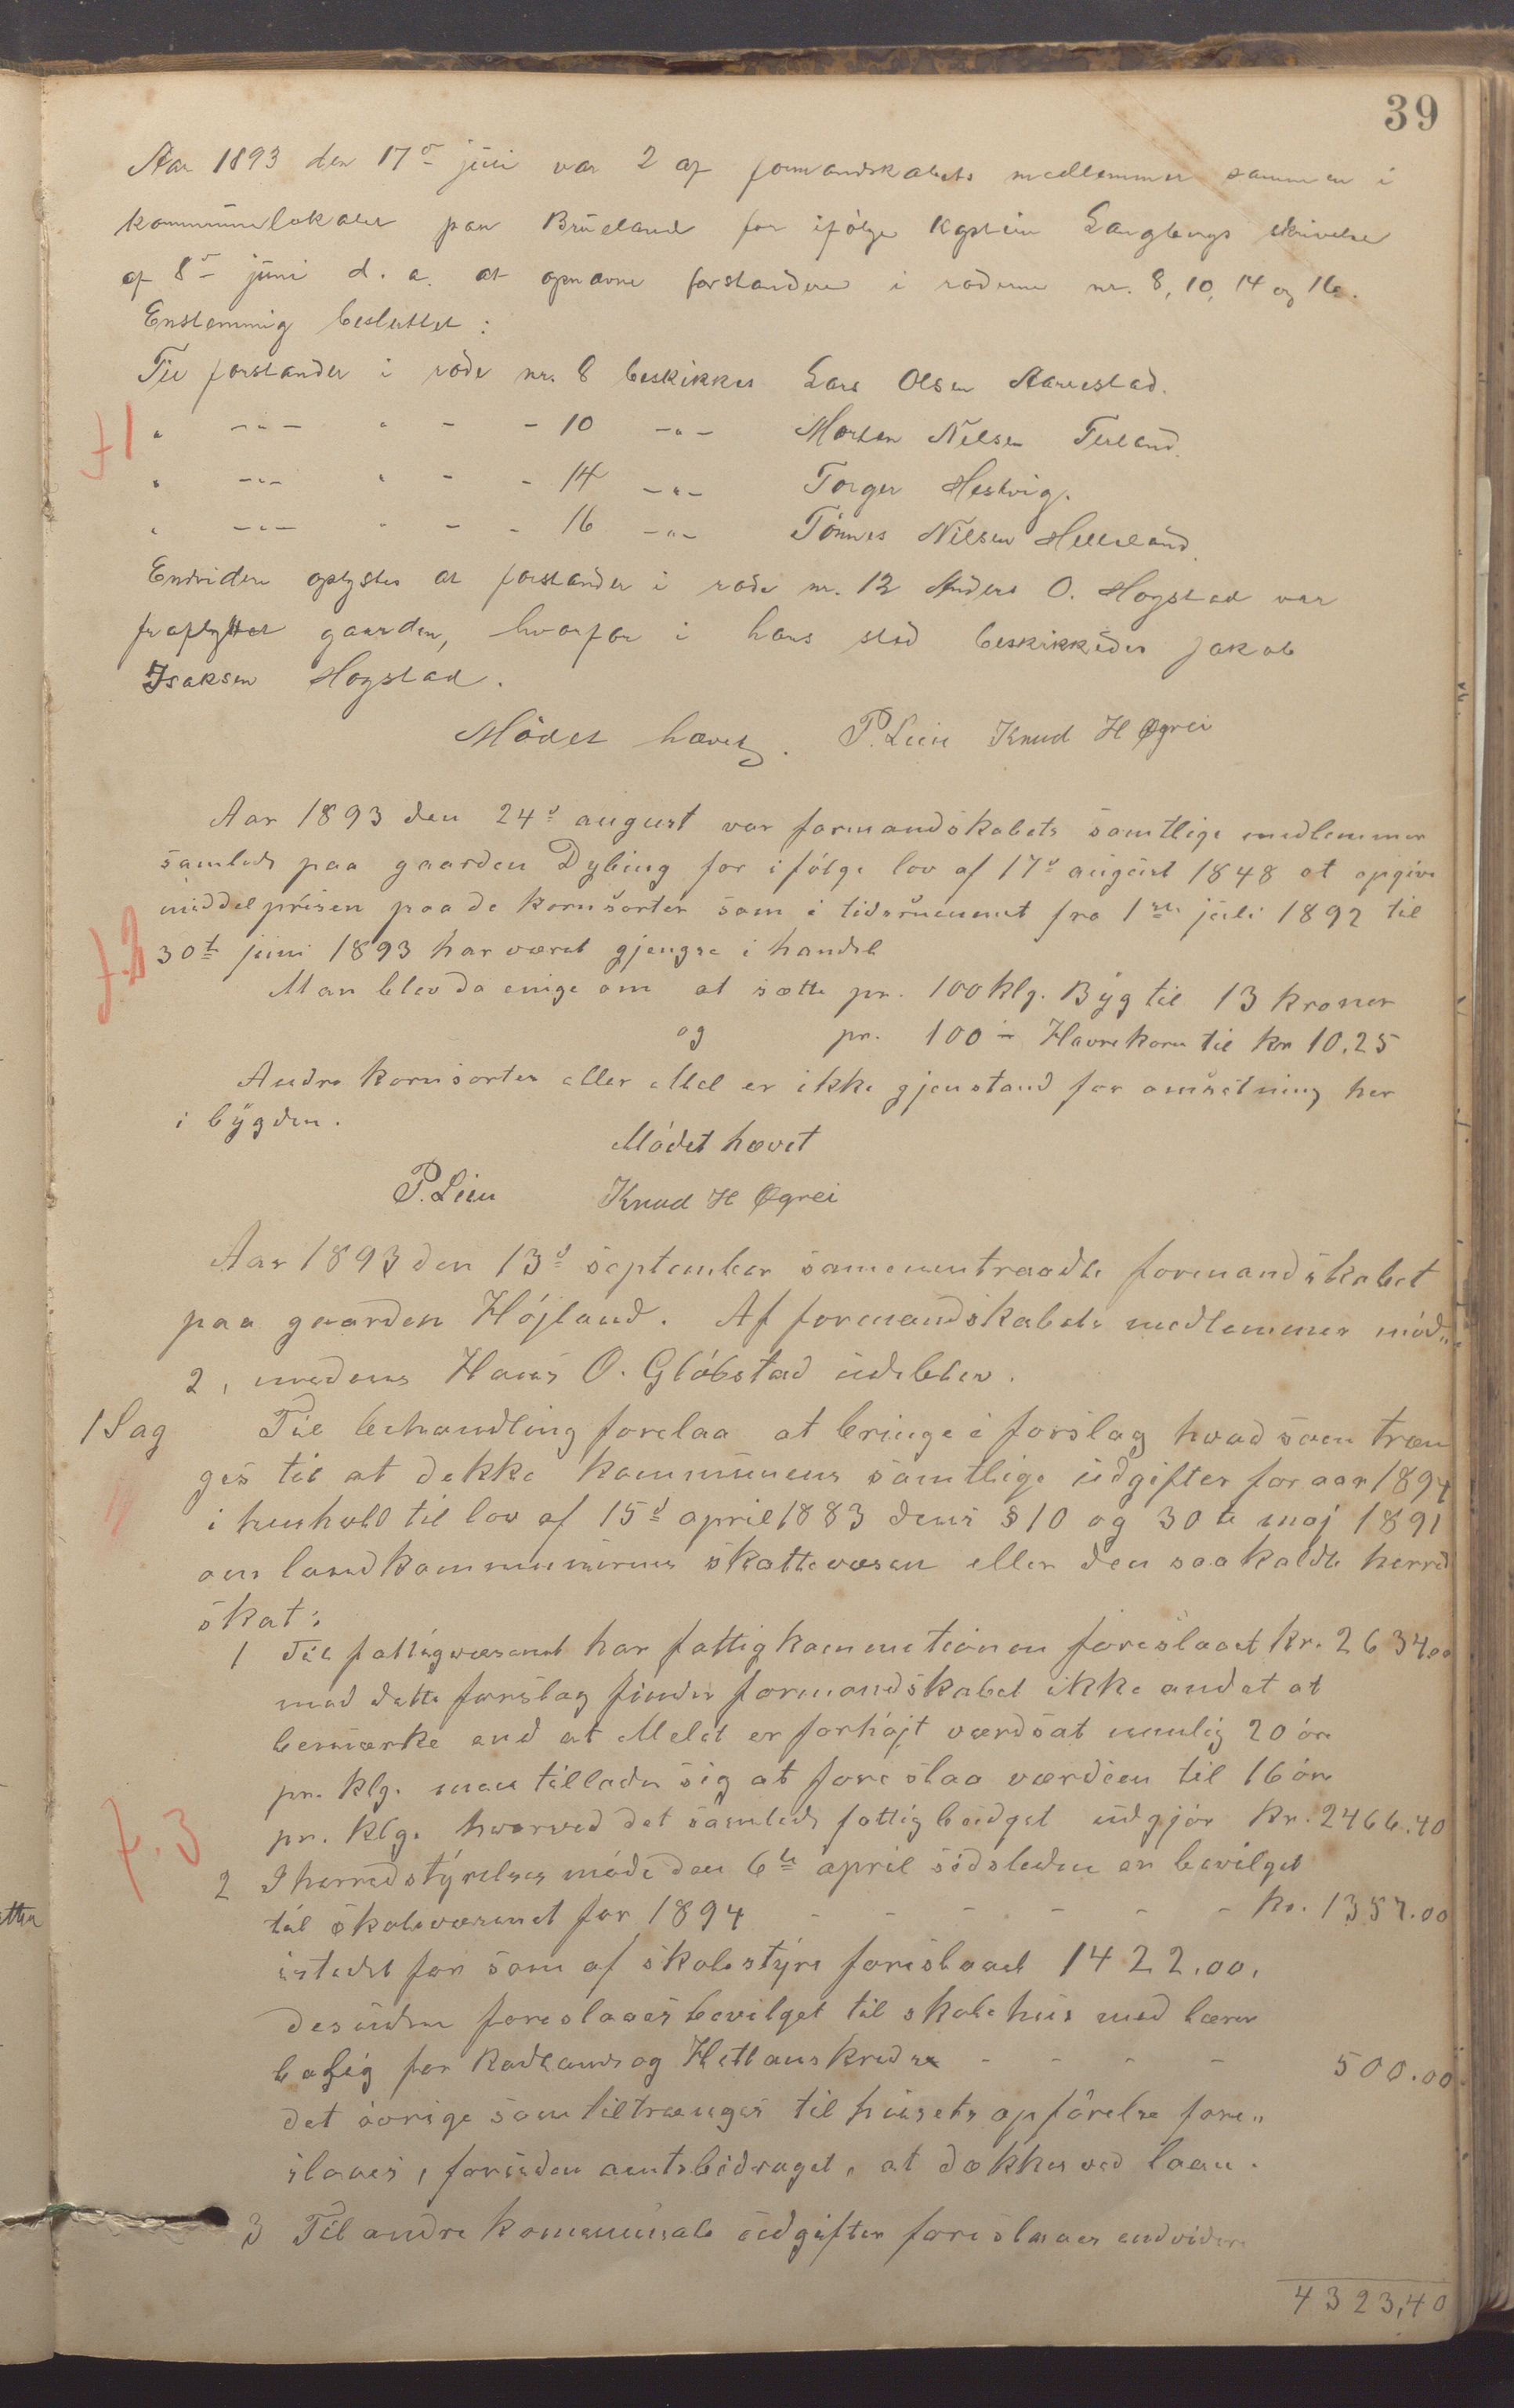 39
Aar 1893 den 17de juni var 2 af formandskabets medlemmer sammen i
kommunelokalet paa Brueland for ifølge Kaptein Langbergs skrivelse
af 8de juni d. a. at opnævne forstandere i roderne nr. 8, 10, 14 og 16.
Enstemmig besluttet:
Til forstander i rode nr. 8 beskikkes Lars Olsen Aarrestad.
" -"- " - - 10 -"- Morten Nilsen Terland.
" -"- " - - 14 -"- Torger Hestvig.
" -"- " - - 16 -"- Tønnes Nilsen Helleland.
Endvidere oplystes at forstander i rode nr. 12 Anders O. Hogstad var
fraflyttet gaarden, hvorfor i hans sted beskikkedes Jakob
Isaksen Hogstad.
Mødet hævet. P. Lien Knud H Øgrei
Aar 1893 den 24d august var formandskabets samtlige medlemmer
samlede paa gaarden Dybing for ifølge lov af 17d august 1848 at opgive
middelprisen paa de kornsorter som i tidsrummet fra 1ste juli 1892 til
30t juni 1893 har været gjengse i handel
Man blev da enige om at sætte pr. 100 klg. Byg til 13 kroner
og pr. 100 - Havrekorn til kr 10.25
Andre kornsorter eller Mel er ikke gjenstand for omsetning her
i bygden.
Mødet hævet
P. Lien Knud H Øgrei
Aar 1893 den 13d september sammentraadte formandskabet
paa gaarden Højland. Af formandskabets medlemmer mød„
2, medens Hans O. Gløbstad udeblev.
1 Sag Til behandling forelaa at bringe i forslag hvad som træn
ges til at dekke kommunens samtlige udgifter for aar 1894
i henhold til lov af 15d april 1883 dens § 10 og 30te maj 1891
om landkommunernes skattevæsen eller den saakaldte herred
skat:
1 Til fattigvæsenet har fattigkommitionen foreslaaet kr. 2634.00
med dette forslag finder formandskabet ikke andet at
bemærke end at Melet er forhøjt værdsat nemlig 20 øre
pr. klg. man tillader sig at foreslaa værdien til 16 øre
pr. klg. hvorved det samlede fattigbudget udgjør Kr. 2466.40
2 I herredstyrelses møde den 6te april sidsleden er bevilget
til skolevæsenet for 1894 - - - - - - kr. 1357.00
istedet for som af skolestyre foreslaaet 1422.00,
desuden foreslaaes bevilget til skolehus med lærer
bolig for Kadlands og Hetlans kredse - - - - 500.00
det øvrige som tiltrænges til husets opførelse fore„
slaaes, foruden amtsbidraget, at dækkes ved laan.
3 Til andre kommunale udgifter foreslaaes endvidere
4323,40